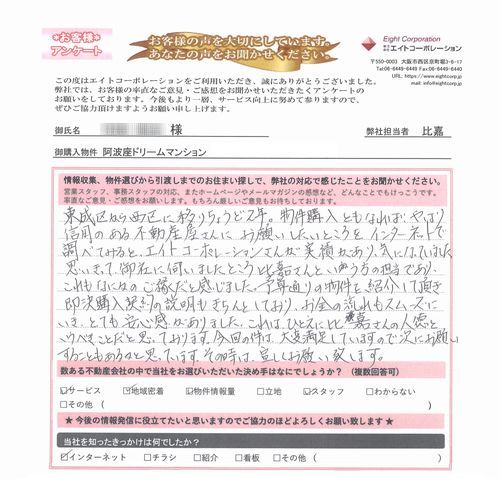 お客様
アンケート
お客様の声を大切にしています。
あなたの声をお聞かせください。
Eight Corporation
株式会社エイトコーポレーション
〒550-0003 大阪市西区京町堀3-6-17
Tel:06-6449-6449 Fax:06-6449-6469
URL: https://www.eightcorp.jp
mail: info@eightcorp.jp
この度はエイトコーポレーションをご利用いただき、誠にありがとうございました。
弊社では、お客様の率直なご意見・ご感想をお聞かせいただきたくアンケートの
お願いをしております。今後もより一層、サービス向上に努めて参りますので、
ぜひご協力頂けますようお願い申し上げます。
御氏名 様 弊社担当者 比嘉
御購入物件 阿波座ドリームマンション
情報収集、物件選びから引渡しまでのお住まい探しで、弊社の対応で感じたことをお聞かせください。
営業スタッフ、事務スタッフの対応、またホームページやメールマガジンの感想など、どんなことでもけっこうです。
率直なご意見・ご感想をお願いします。もちろん厳しいご意見もお待ちしております。
東成区から西区に移りちょうど2年。物件購入ともなれば、やはり
信用のある不動産屋さんに お願いしたいところをインターネットで
調べてみると、エイトコーポレーションさんが実績があり、気になっていました。
思いきって御社に伺いましたところ比嘉さんという方の担当であり、
これもなにかのご縁だと感じました。予算通りの物件を紹介して頂き
即決購入契約の説明もきちんとしており、お金の流れもスムーズに
いき、とても安心感がありました。これは、ひとえに比嘉さんの人徳と
いうべきことだと思っております。今回の件は、大変満足していますので次にお願い
することもあるかと思っています。その時は、宜しくお願い致します。
数ある不動産会社の中で当社をお選びいただいた決め手はなんでしょう？（複数回答可）
☑サービス ☑地域密着 ☑物件情報量 □立地 ☑スタッフ □わからない
□その他（ ）
★ 今後の情報発信に役立てたいと思いますのでご協力のほどよろしくお願い致します ★
当社を知ったきっかけは何でしたか？
☑インターネット □チラシ □紹介 □看板 □その他（ ）